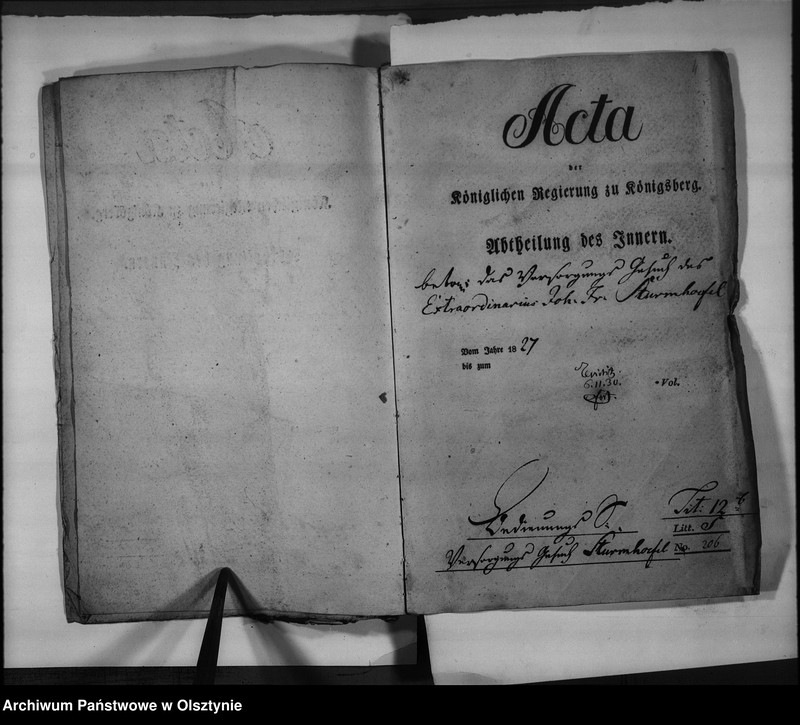 Acta
der
Königlichen Regierung zu Königsberg.
Abtheilung des Innern.
betr: das Versorgungs Gesuch des
Extraordinarius Joh. Fr. Sturmhoefel
Vom Jahre 1827
bis zum
6.11.30.
Vol.
Bedienungs S.
Tit: 12
Litt. S
Versorgungs Gesuch Sturmhoefel No. 206
Archiwum Państwowe w Olsztynie